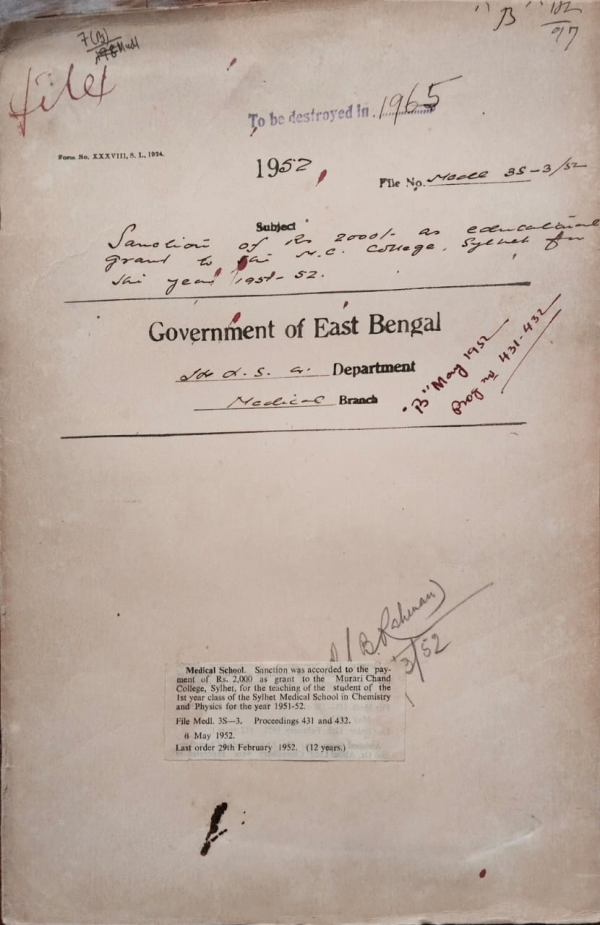 "B"
97
7(B)
File
To be destroyed in 1965
Form No. XXXVIII, S. I., 1924.
1952
File No. Medl 3S-3/52
Subject
Sanction of Rs 2000/- as educational
grant to the M.C. College, Sylhet for
the year 1951-52.
Government of East Bengal
H & L. S. G. Department
Medical Branch
"B" May 1952
Prog no 431-432
B. Rahman
3/52
Medical School. Sanction was accorded to the pay-
ment of Rs. 2,000 as grant to the Murari Chand
College, Sylhet, for the teaching of the student of the
1st year class of the Sylhet Medical School in Chemistry
and Physics for the year 1951-52.
File Medl. 3S—3. Proceedings 431 and 432.
May 1952.
Last order 29th February 1952. (12 years.)